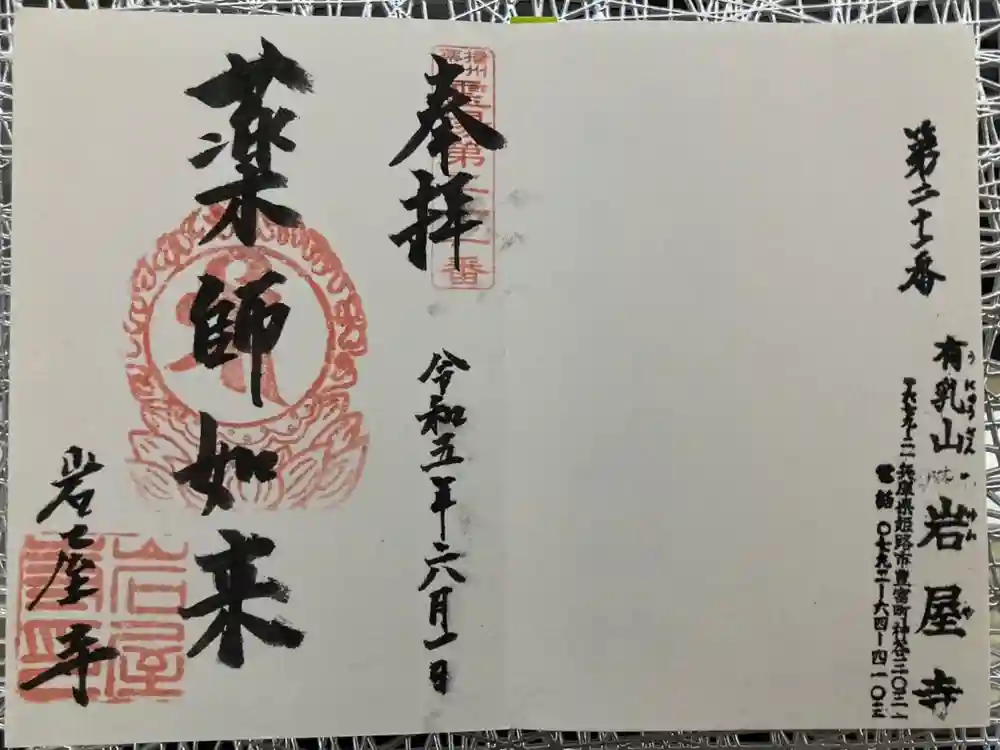 第二十一番
有乳山 岩屋寺
うにゅうざん いわやじ
兵庫県姫路市豊富町神谷
電話 〇七九二ー六四ー四一〇三
奉拝
播州
薬師
霊場第二十一番
令和五年六月一日
薬師如来
岩屋寺
岩屋